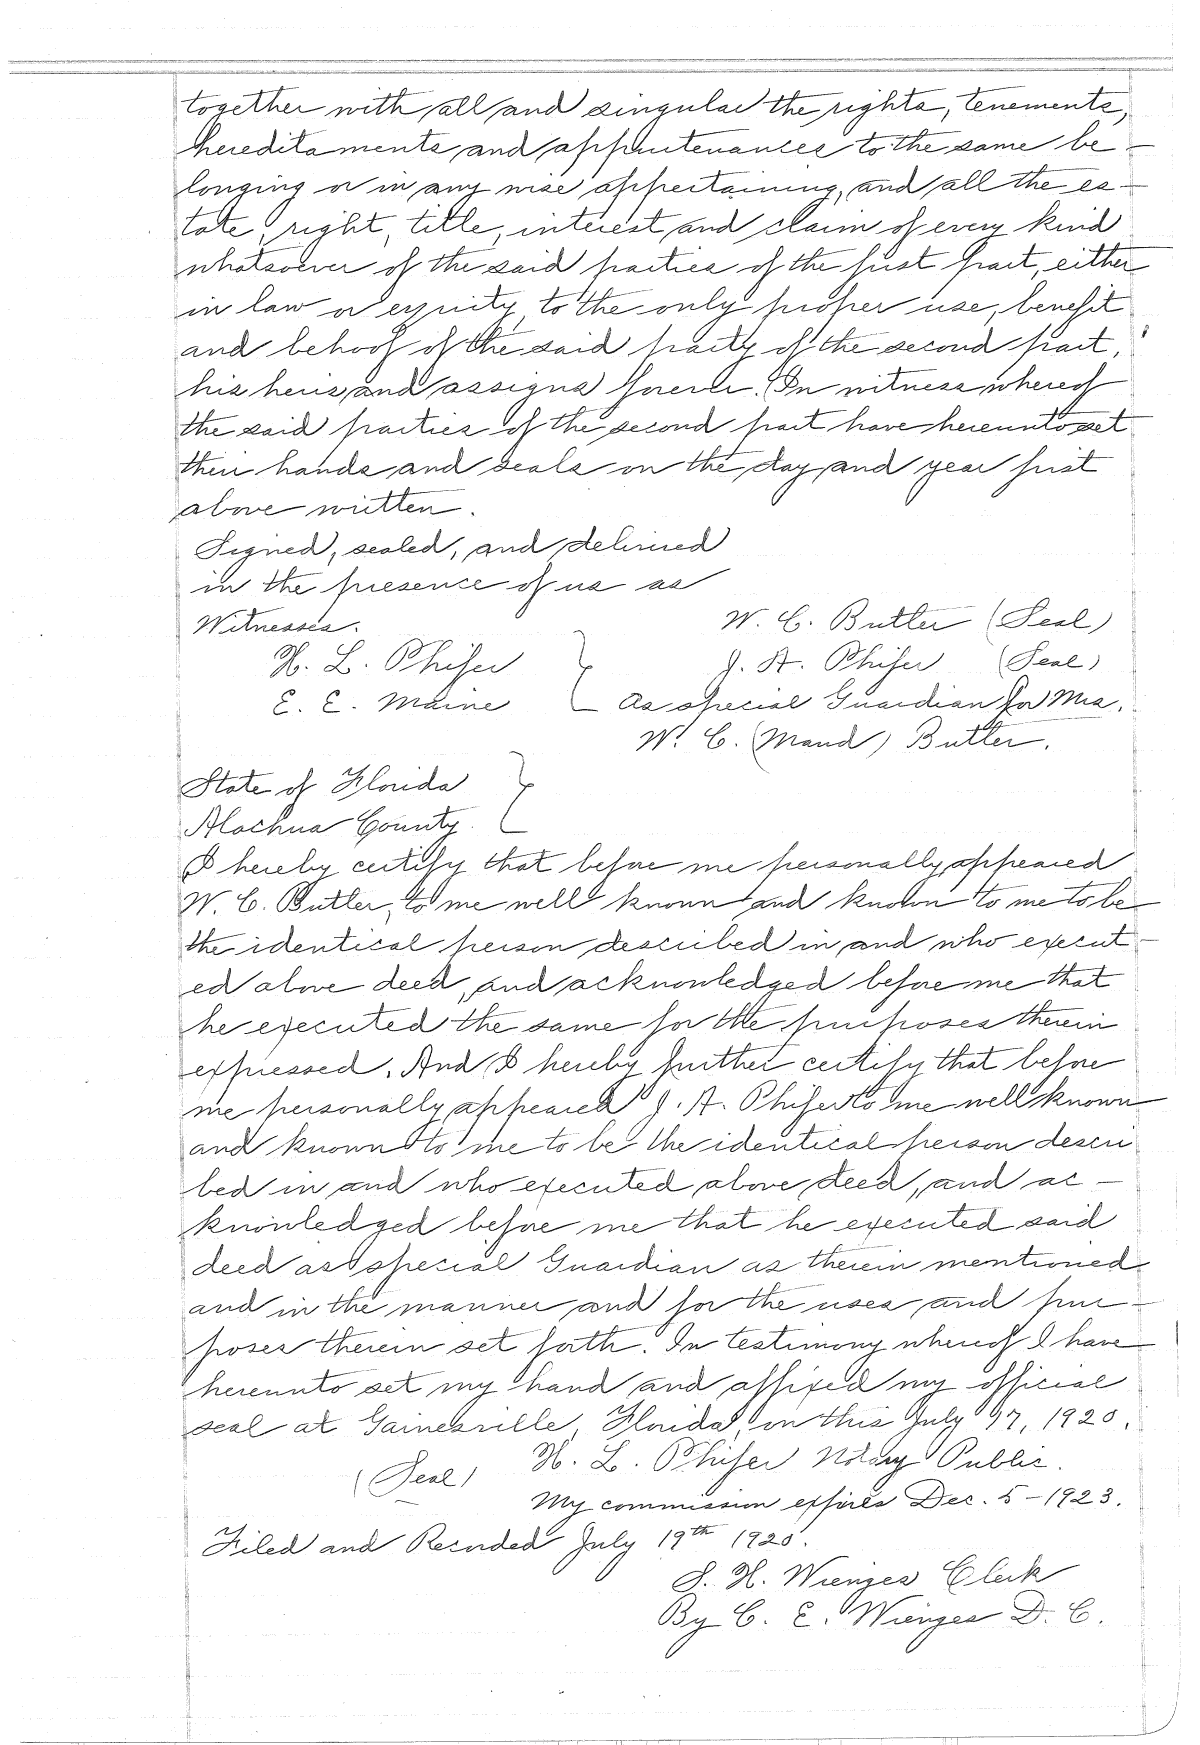 together with all and singular the rights, tenements,
hereditaments and appurtenances to the same be-
longing or in any wise appertaining, and all the es-
tate, right, title, interest and claim of every kind
whatsoever of the said parties of the first part, either
in law or equity, to the only proper use, benefit
and behoof of the said party of the second part,
his heirs and assigns forever. In witness whereof
the said parties of the second part have hereunto set
their hands and seals on the day and year first
above written.
Signed, sealed, and delivered
in the presence of us as
Witnesses.
W. C. Butler (Seal)
H. L. Phifer
J. A. Phifer (Seal)
E. E. Maine
As special Guardian for Mrs.
W. C. (Maud) Butler.
State of Florida
Alachua County.
I hereby certify that before me personally appeared
W. C. Butler, to me well known and known to me to be
the identical person described in and who execut-
ed above deed, and acknowledged before me that
he executed the same for the purposes therein
expressed. And I hereby further certify that before
me personally appeared J. A. Phifer to me well known
and known to me to be the identical person descri
bed in and who executed above deed, and ac-
knowledged before me that he executed said
deed as special Guardian as therein mentioned
and in the manner and for the uses and pur-
poses therein set forth. In testimony whereof I have
hereunto set my hand and affixed my official
seal at Gainesville, Florida, on this July 17, 1920.
(Seal) H. L. Phifer Notary Public.
My commission expires Dec. 5-1923.
Filed and Recorded July 19th 1920.
S. H. Wienges Clerk
By C. E. Wienges D. C.